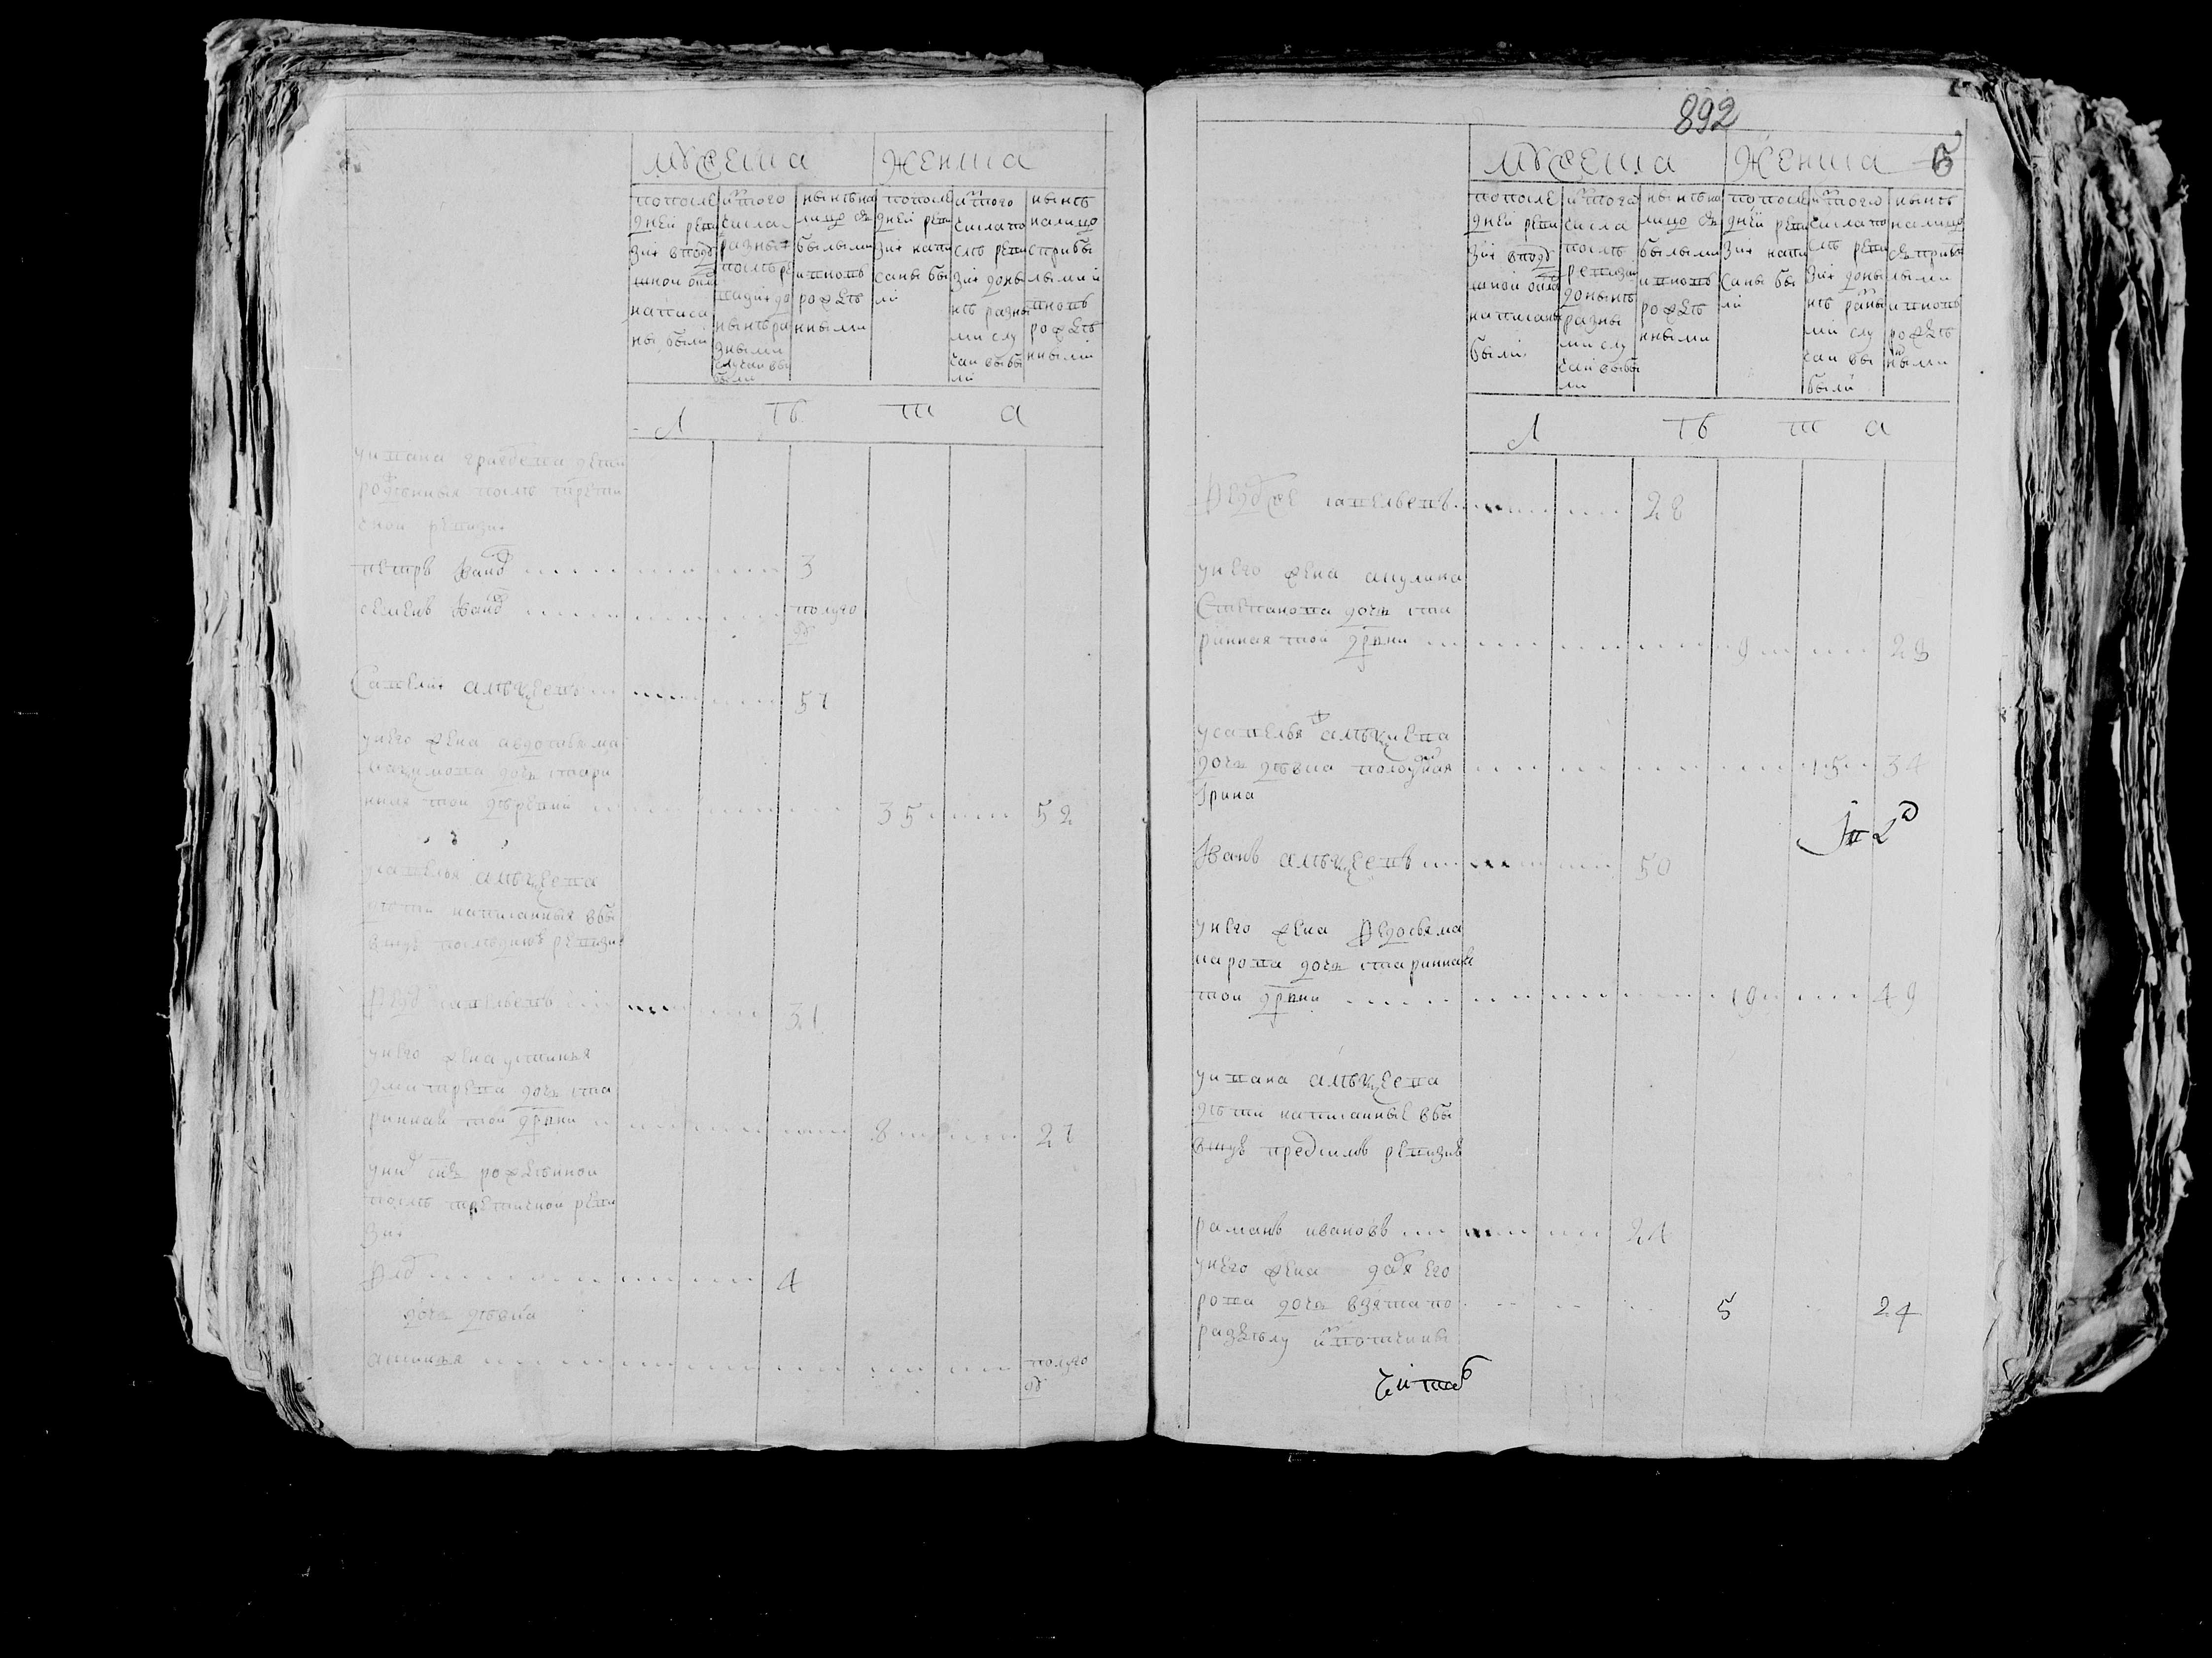 мужеска женска
по после
дней реви
зии в под
ушной окла
написа
ны были
ис того
числа
разных
после ре
визии до
ныне ра
зными
случаи вы
были
ныне на
лицо с при
былыми
и вновь
рожде
нными
по после
дней реви
зии напи
саны бы
ли
ис того
числа по
сле реви
зии доны
не разны
ми слу
чаи выбы
ли
ныне
на лицо
с прибы
лыми и
вновь
рожде
нными
л е т а
у ивана дети
рожденныя после третьи
чной ревизии
петръ иванов 3
семенъ иванов полуго
ду
Савелий алексеевъ 51
у него жена авдотья ма
ксимова дочь стари
нная той деревни 35 52
у савелья алексеева
дети написанныя в бы
вшую последнюю ревизию
федор савельевъ 31
у него жена устинья
дмитреева дочь ста
ринная той дрвни 8 27
у них сын рожденной
после третичной реви
зии
4
дочь девка
аксинья полуго
ду
892
мужеска женска 6
по после
дней реви
зии в под
ушной окла
написаны
были
ис того
числа
после
ревизии
доныне
разны
ми слу
чаи выбы
ли
ныне на
лицо с при
былыми
и вновь
рожде
нными
по после
дней реви
зии напи
саны бы
ли
ис того
числа по
сле реви
зии доны
не разны
ми слу
чаи вы
были
ныне
на лицо
с прибы
лыми
и вновь
рожде
нными
л е т а
Федор же савельевъ 28
у него жена акулина
Степанова дочь ста
ринная той дрвни 9 28
у савелья ж алексеева
дочь девка
Ирина 15 34
Иванъ алексеевъ 50
у него жена Федосья ма
карова дочь стариннае
той дрвни 19 49
у ивана алексеева
дети написанные в бы
вшую пред сим ревизию
раманъ ивановъ 24
у него жена дарья его
рова дочь взята по 5 24
разделу из вотчины